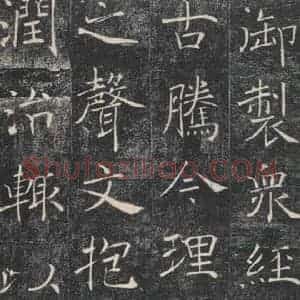 御製衆經
古騰今理
之聲文抱
潤治輒以
Shufaziliao.COM